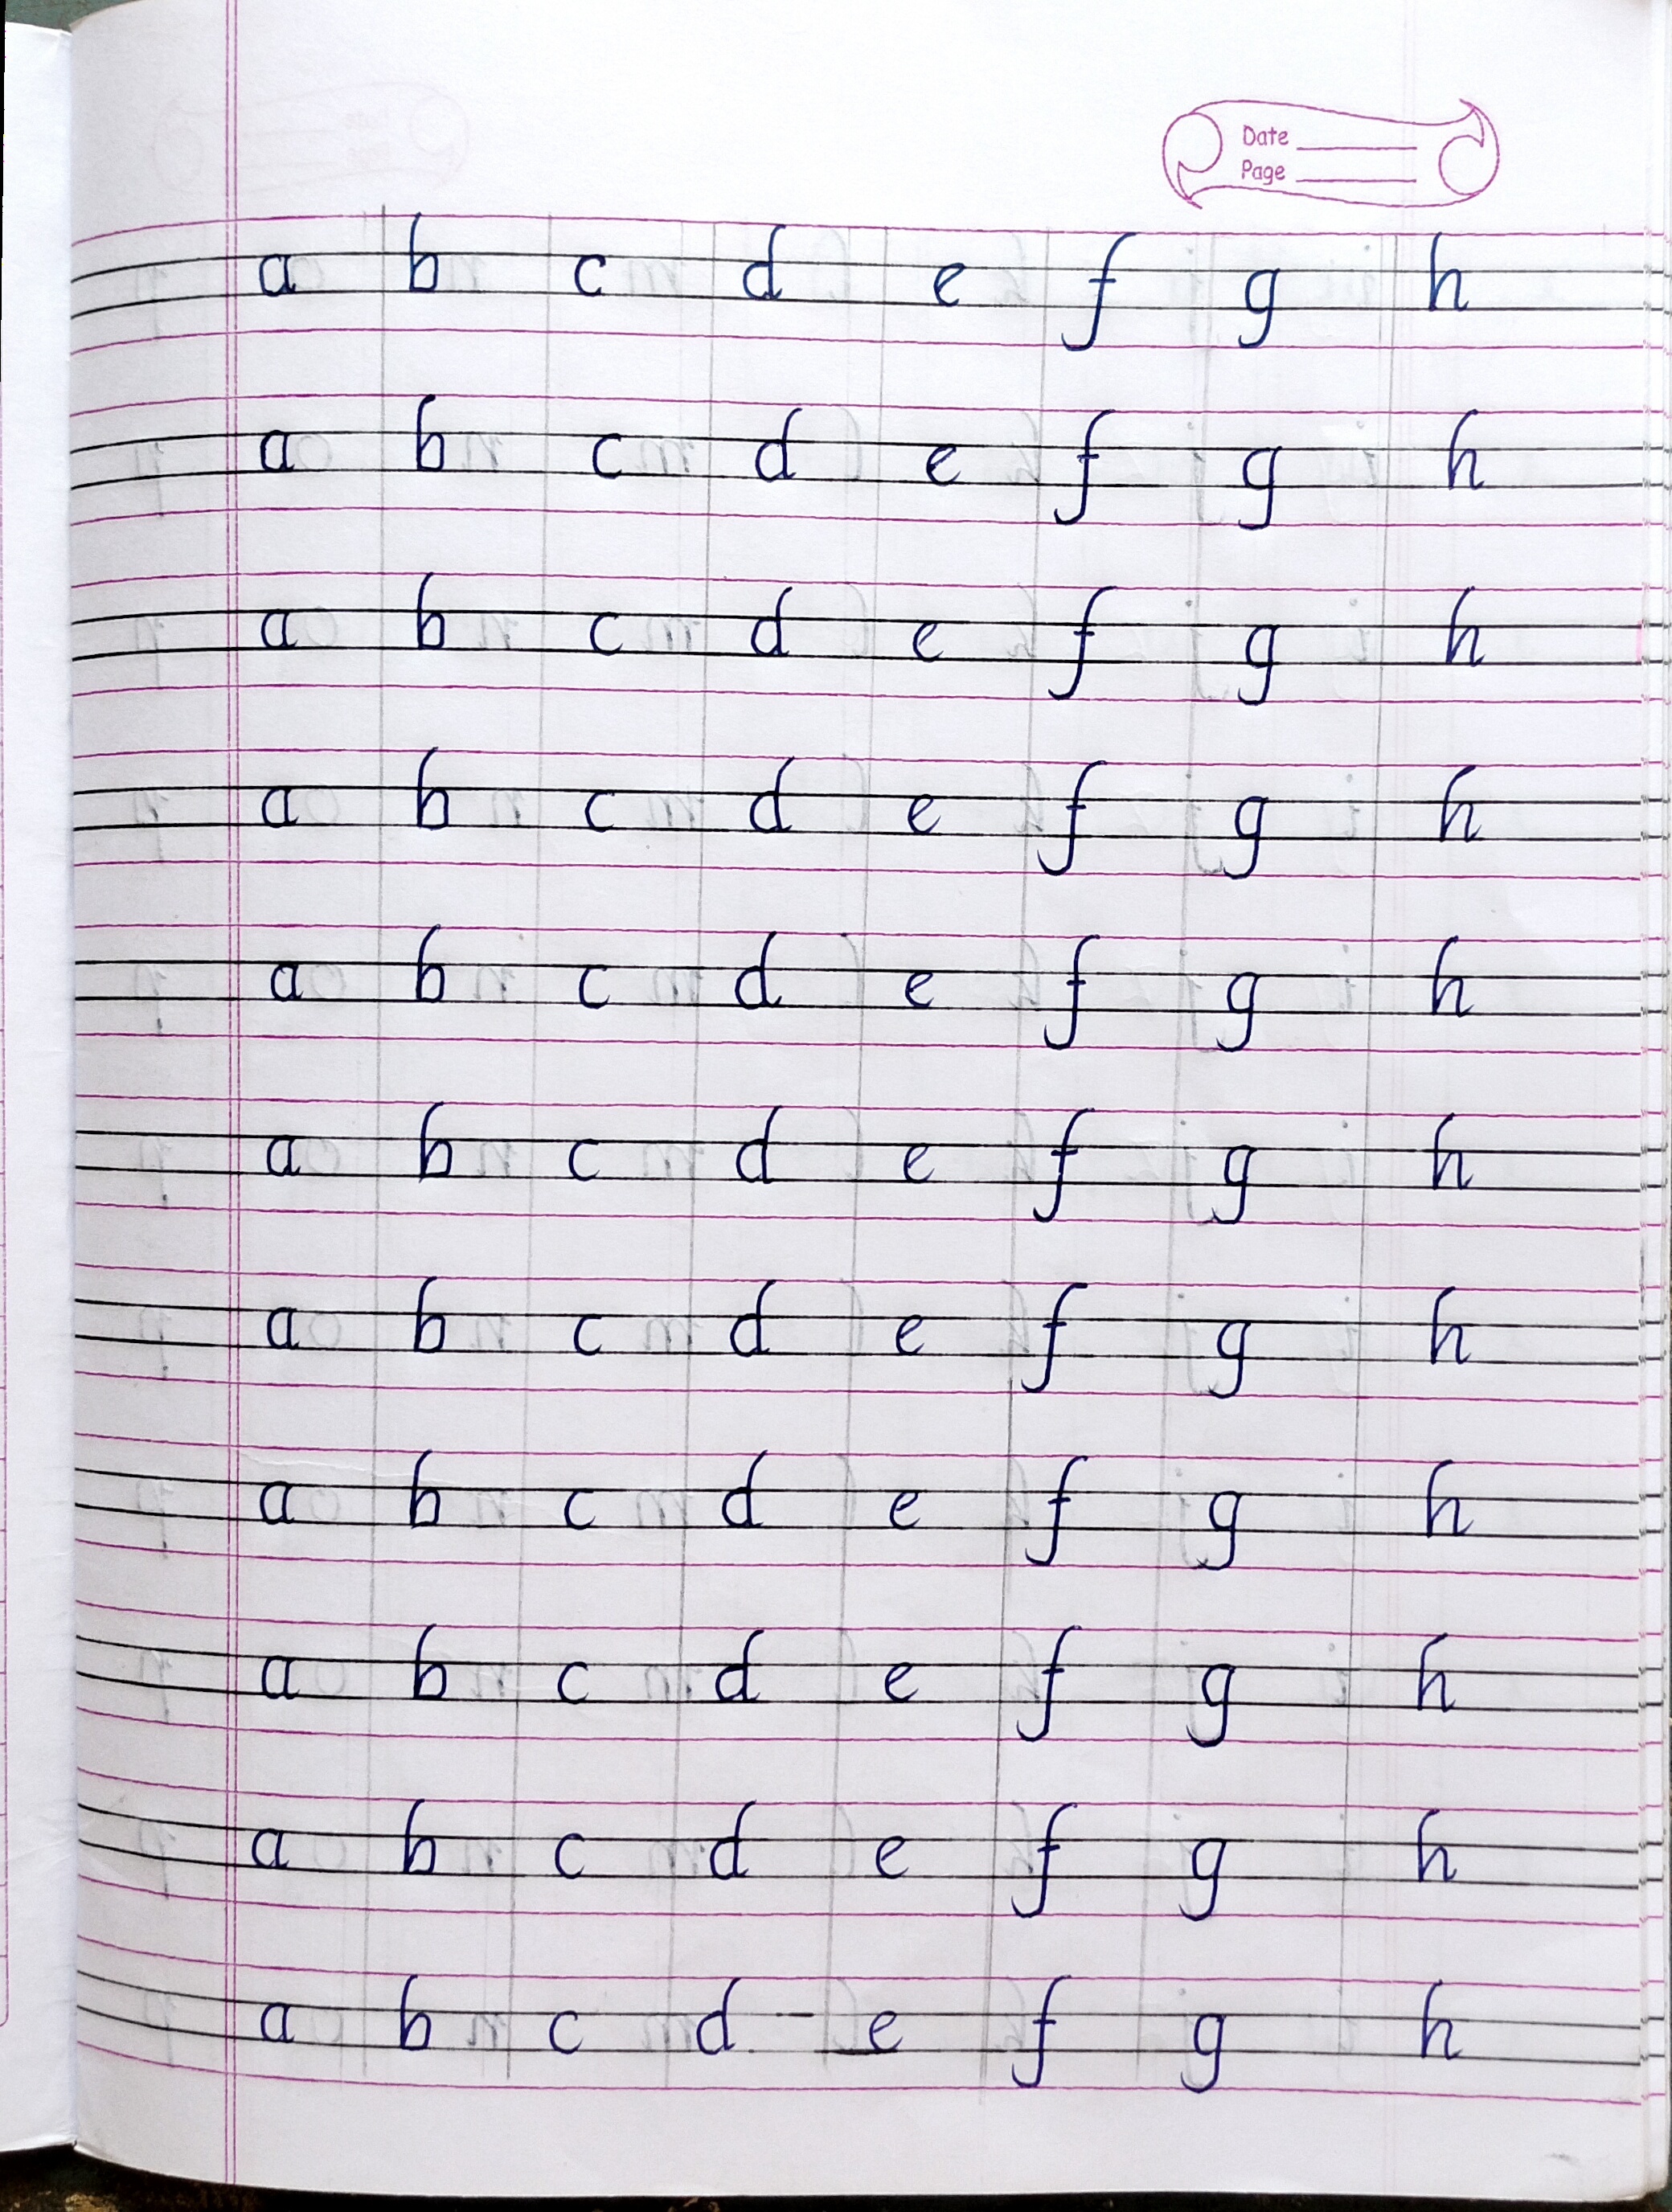 Date
Page
a b c d e f g h
a b c d e f g h
a b c d e f g h
a b c d e f g h
a b c d e f g h
a b c d e f g h
a b c d e f g h
a b c d e f g h
a b c d e f g h
a b c d e f g h
a b c d e f g h